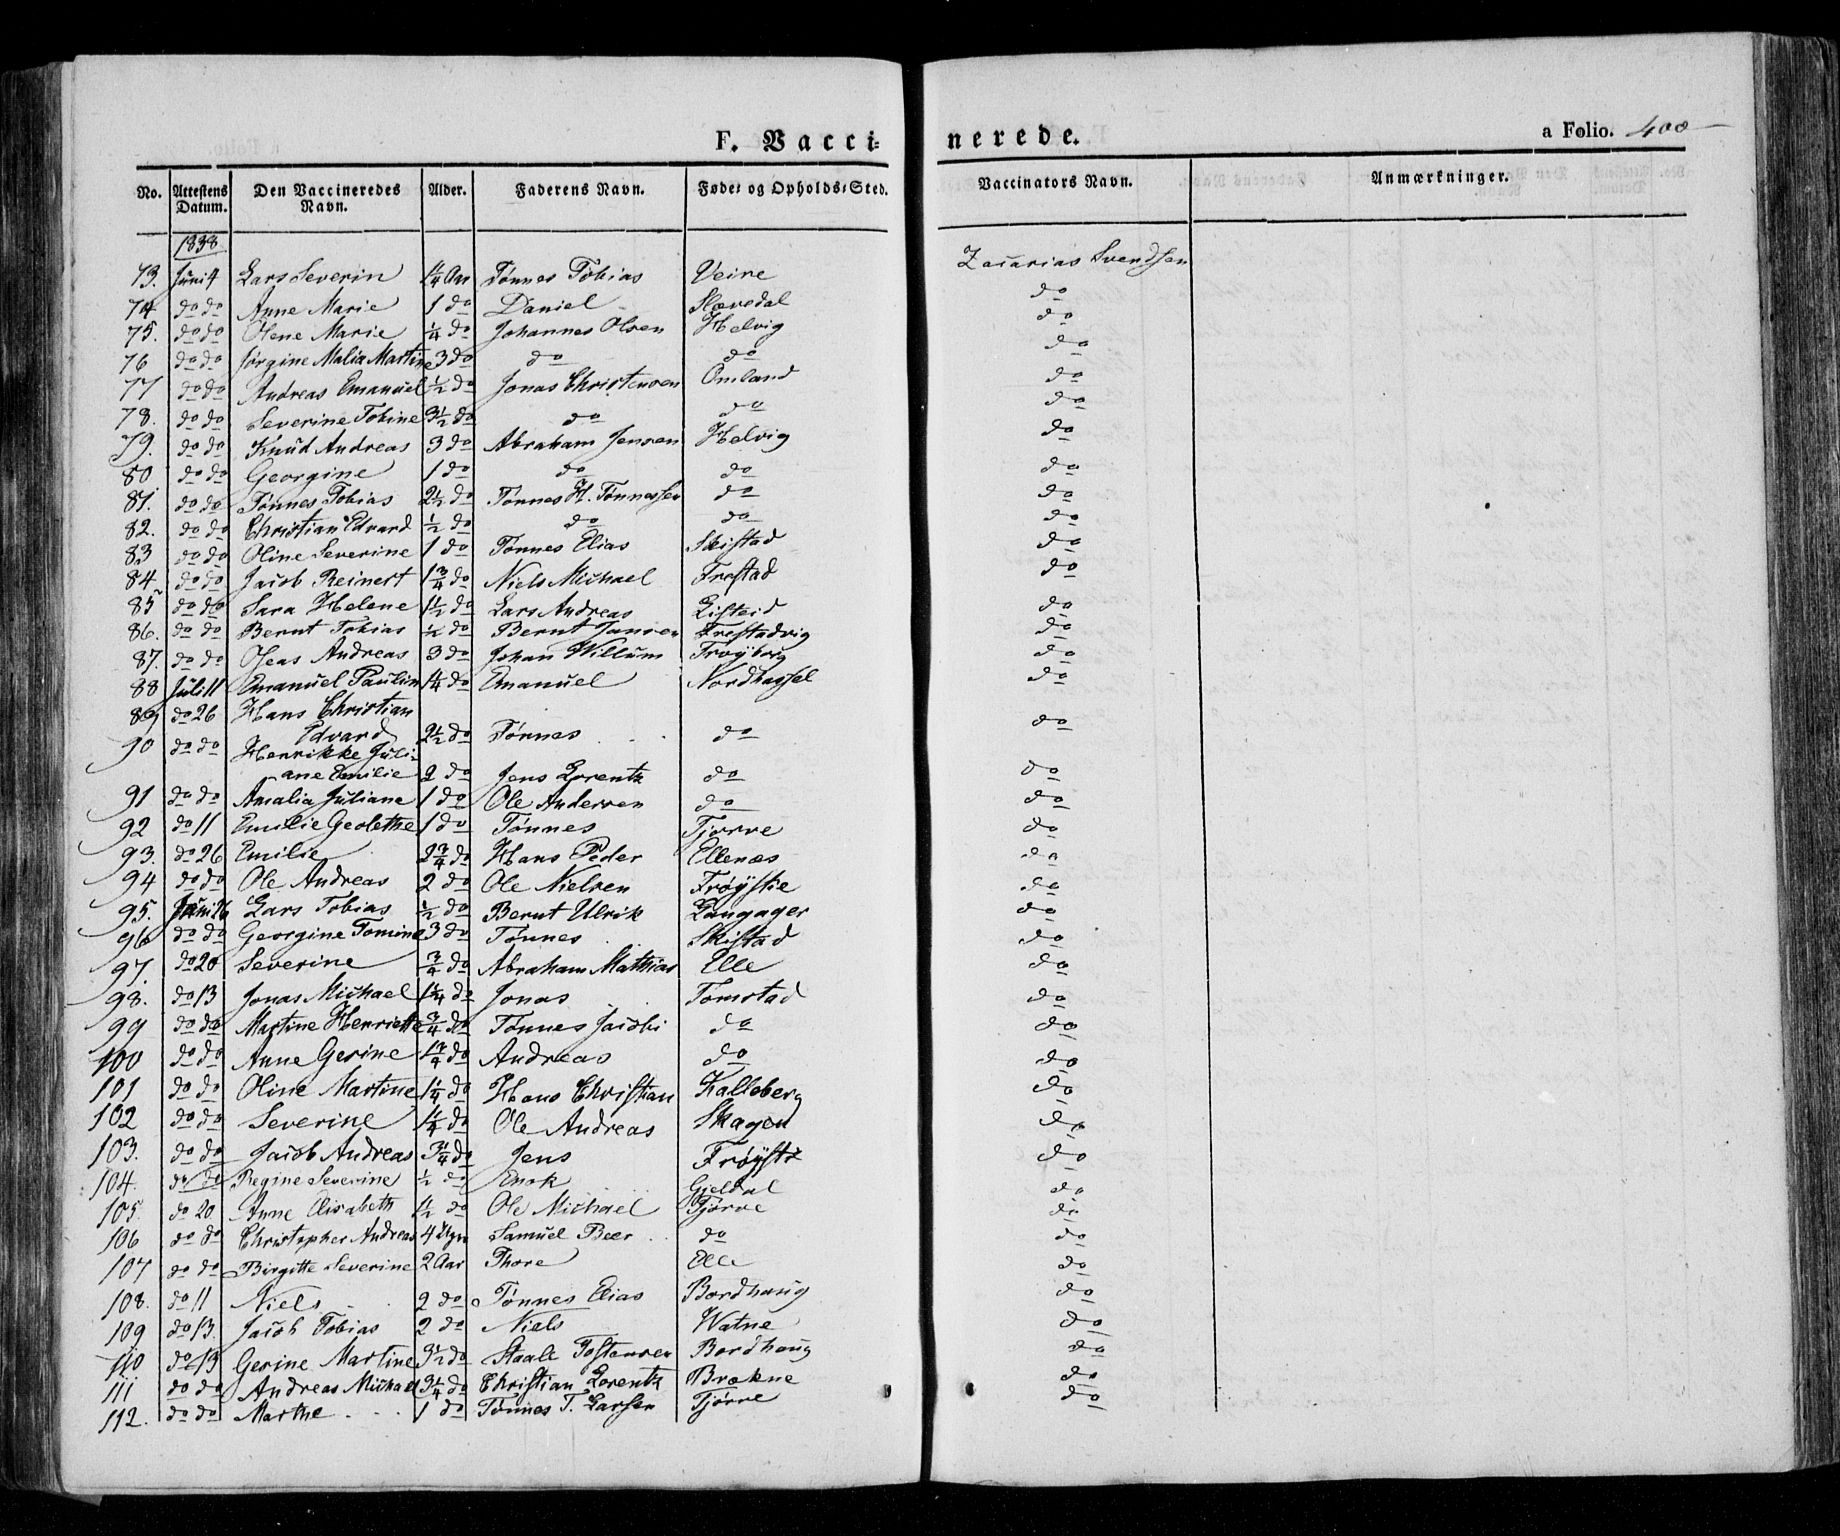 F. Vacci-
nerede.
a Folio. 400
No. Attestens Datum. Den Vaccineredes Navn. Alder. Faderens Navn. Føde- og Opholds-Sted. Vaccinators Navn. Anmærkninger.
1838
73. Juni 4 Lars Severin 1¼ Aar Tønnes Tobias Veire Zacarias Svendsen
74 do do Anne Marie 1 do Daniel Slevedal do
75. do do Olene Marie ¼ do Johannes Olsen Helvig do
76 do do Jørgine Malia Martine 3 do do do do
77 do do Andreas Emanuel ½ do Jonas Christensen Omland do
78. do do Severine Tobine 3½ do do do do
79. do do Knud Andreas 3 do Abraham Jensen Helvig do
80 do do Georgine 1 do do do do
81. do do Tønnes Tobias 2½ do Tønnes H. Tønnessen do do
82. do do Christian Edvard ½ do do do do
83 do do Oline Severine 1 do Tønnes Elias Skistad do
84. do do Jacob Reinert 1¾ do Niels Michael Frestad do
85 do do Sara Helene 1½ do Lars Andreas Listeid do
86. do do Bernt Tobias ½ do Bernt Jansen Frestadvig do
87. do do Oleas Andreas 3 do Johan Willum do
88 Juli 11 Emanuel Paulin 1¼ do Emanuel Nordhassel do
89 do 26 Hans Christian
Edvard 2½ do Tønnes do do
90 do do Henrikke Juli-
ane Emilie 2 do Jens Lorentz do do
91 do do Amalia Juliane 1 do Ole Andersen do do
92 do 11 Emilie Geolethe 1 do Tønnes Tjørve do
93. do 26 Emilie 2¾ do Hans Peder Ellenæs do
94 do do Ole Andreas 2 do Ole Nielsen Frøystie do
95. Juni 26 Lars Tobias ½ do Bernt Ulrik Langager do
96 do do Georgine Tomine 3 do Tønnes Skistad do
97. do 20 Severine ¾ do Abraham Mathias Elle do
98. do 13 Jonas Michael 1¼ do Jonas Tomstad do
99 do do Martine Henriette ¾ do Tønnes Jacobi do do
100 do do Anne Gesine 1¾ do Andreas do do
101 do do Oline Martine 1¼ do Hans Christian Kalleberg do
102 do do Severine 1¼ do Ole Andreas Skagen do
103. do do Jacob Andreas 3¼ do Jens Frøysti do
104. do do Regine Severine ½ do Enok Gjeldal do
105 do 20 Anne Elisabeth 1½ do Ole Michael Tjørve do
106 do do Christopher Andreas 4 Samuel Beer do do
107 do do Birgitte Severine 2 Aar Thore Elle do
108. do 11 Niels 2 do Tønnes Elias Bordhaug do
109 do 13. Jacob Tobias 2 do Niels Watne do
110 do 13 Gesine Martine 3½ do Staale Tostensen Bordhaug do
111 do do Andreas Michael 3¼ do Christian Lorentz Brækne do
112. do do Marthe 1 do Tønnes T. Larsen Tjørve do